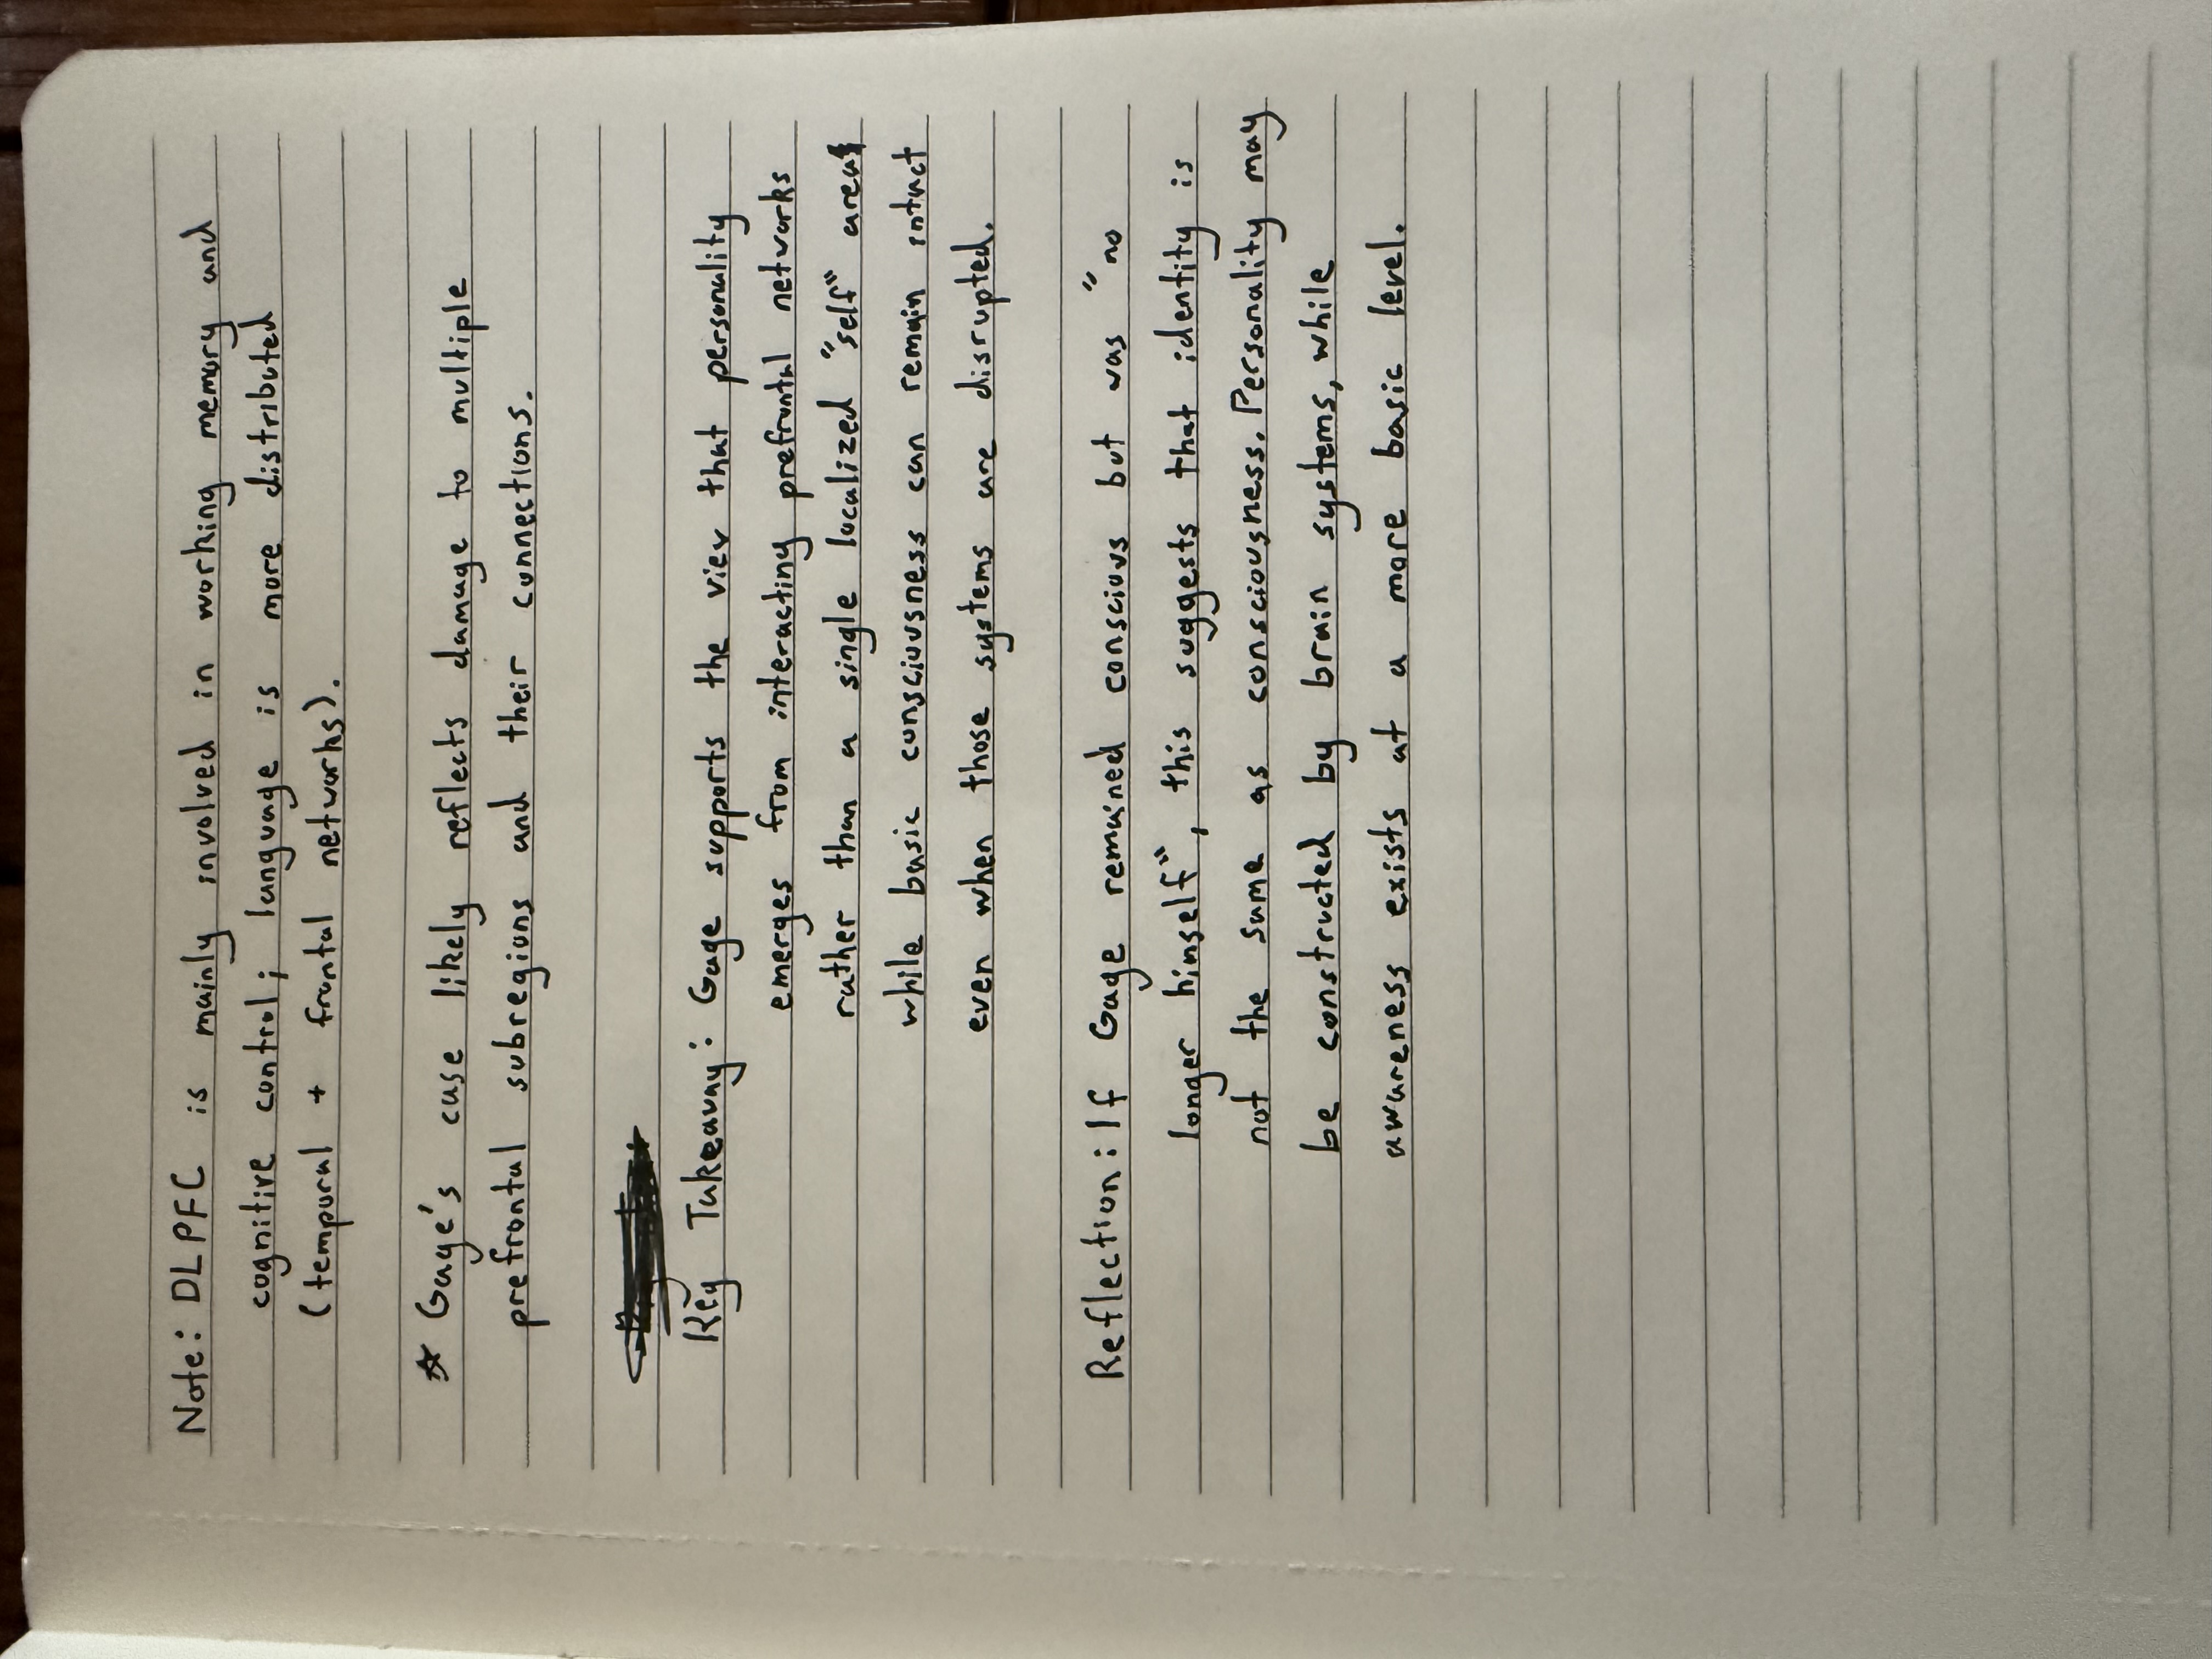 Note: DLPFC is mainly involved in working memory and
cognitive control; language is more distributed
(temporal + frontal networks).
☆ Gage's case likely reflects damage to multiple
prefrontal subregions and their connections.
Key Takeaway: Gage supports the view that personality
emerges from interacting prefrontal networks
rather than a single localized "self" area
while basic consciousness can remain intact
even when those systems are disrupted.
Reflection: If Gage remained conscious but was "no
longer himself", this suggests that identity is
not the same as consciousness. Personality may
be constructed by brain systems, while
awareness exists at a more basic level.